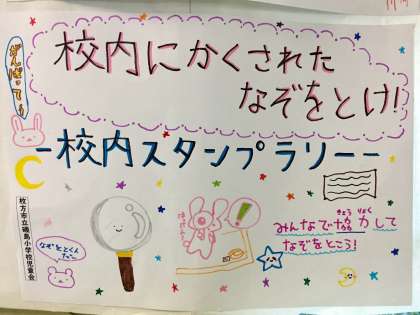 がんばって〜
校内にかくされた
なぞをとけ!
-校内スタンプラリー-
枚方市立磯島小学校児童会
なぞをとくんだ〜
みんなで協力して
きょう りょく
なぞをとこう!